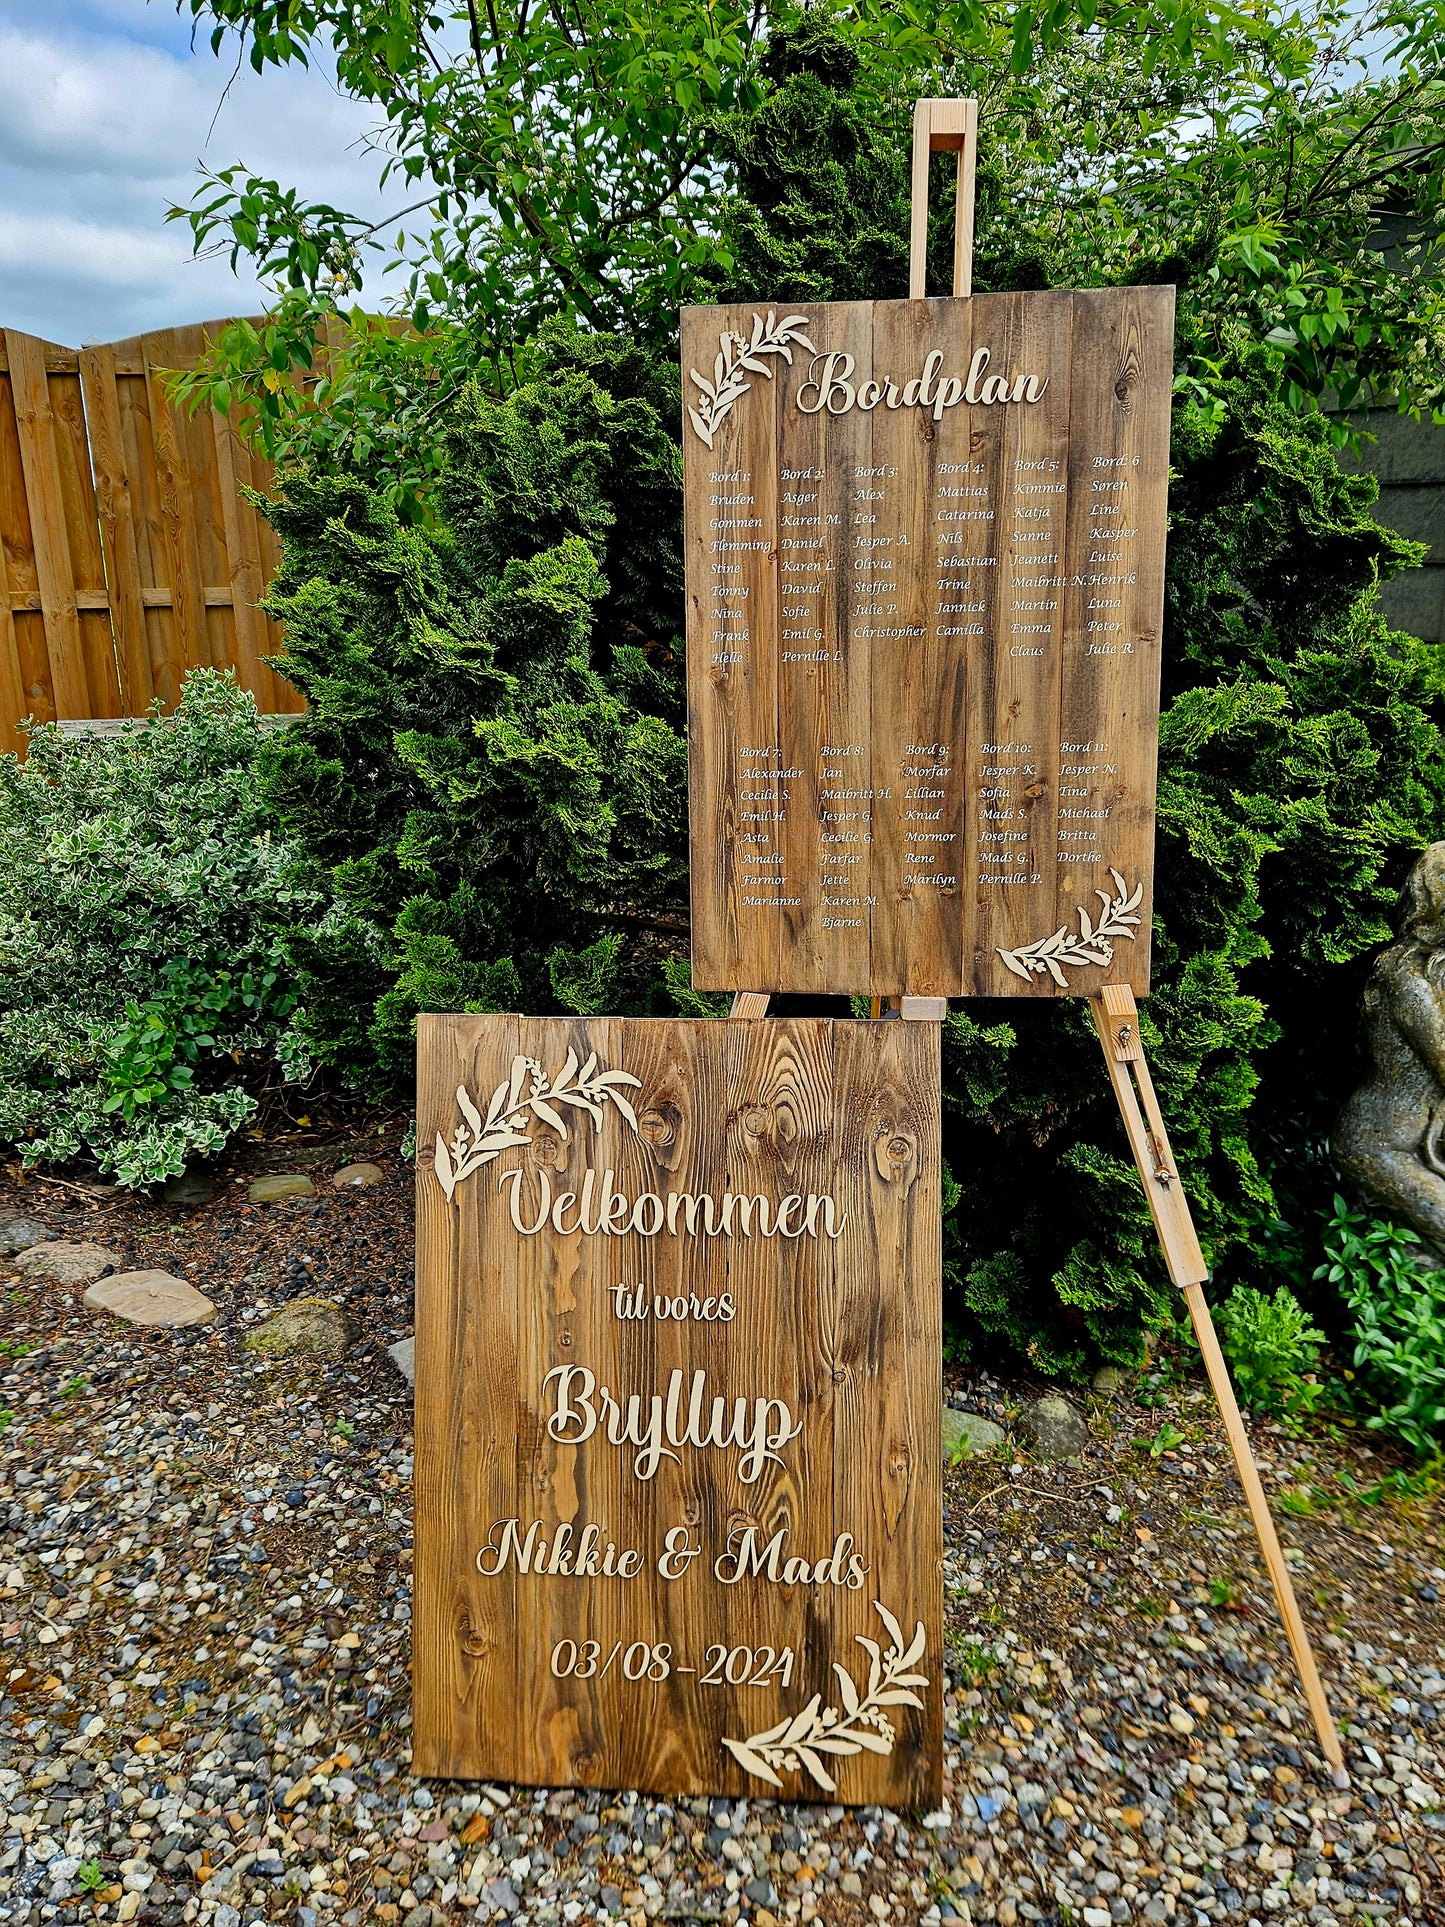 Bordplan
Bord 1: Bord 2: Bord 3: Bord 4: Bord 5: Bord: 6
Bruden Asger Alex Mattias Kimmie Søren
Gommen Karen M. Lea Catarina Katja Line
Flemming Daniel Jesper A. Nils Sanne Kasper
Stine Karen L. Olivia Sebastian Jeanett Luise
Tonny David Steffen Trine Maibritt N. Henrik
Nina Sofie Julie P. Jannick Martin Luna
Frank Emil G. Christopher Camilla Emma Peter
Helle Pernille L. Claus Julie R.
Bord 7: Bord 8: Bord 9: Bord 10: Bord 11:
Alexander Jan Morfar Jesper K. Jesper N.
Cecilie S. Maibritt H. Lillian Sofia Tina
Emil H. Jesper G. Knud Mads S. Michael
Asta Cecilie G. Mormor Josefine Britta
Amalie Farfar Rene Mads G. Dorthe
Farmor Jette Marilyn Pernille P.
Marianne Karen M.
Bjarne
Velkommen
til vores
Bryllup
Nikkie & Mads
03/08-2024